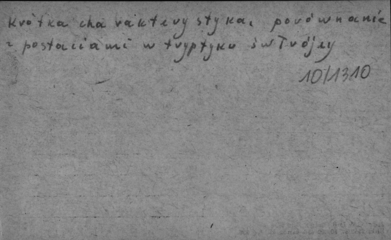 Krótka charakterystyka, porównanie
z postaciami w tryptyku św Trójcy
10/1310